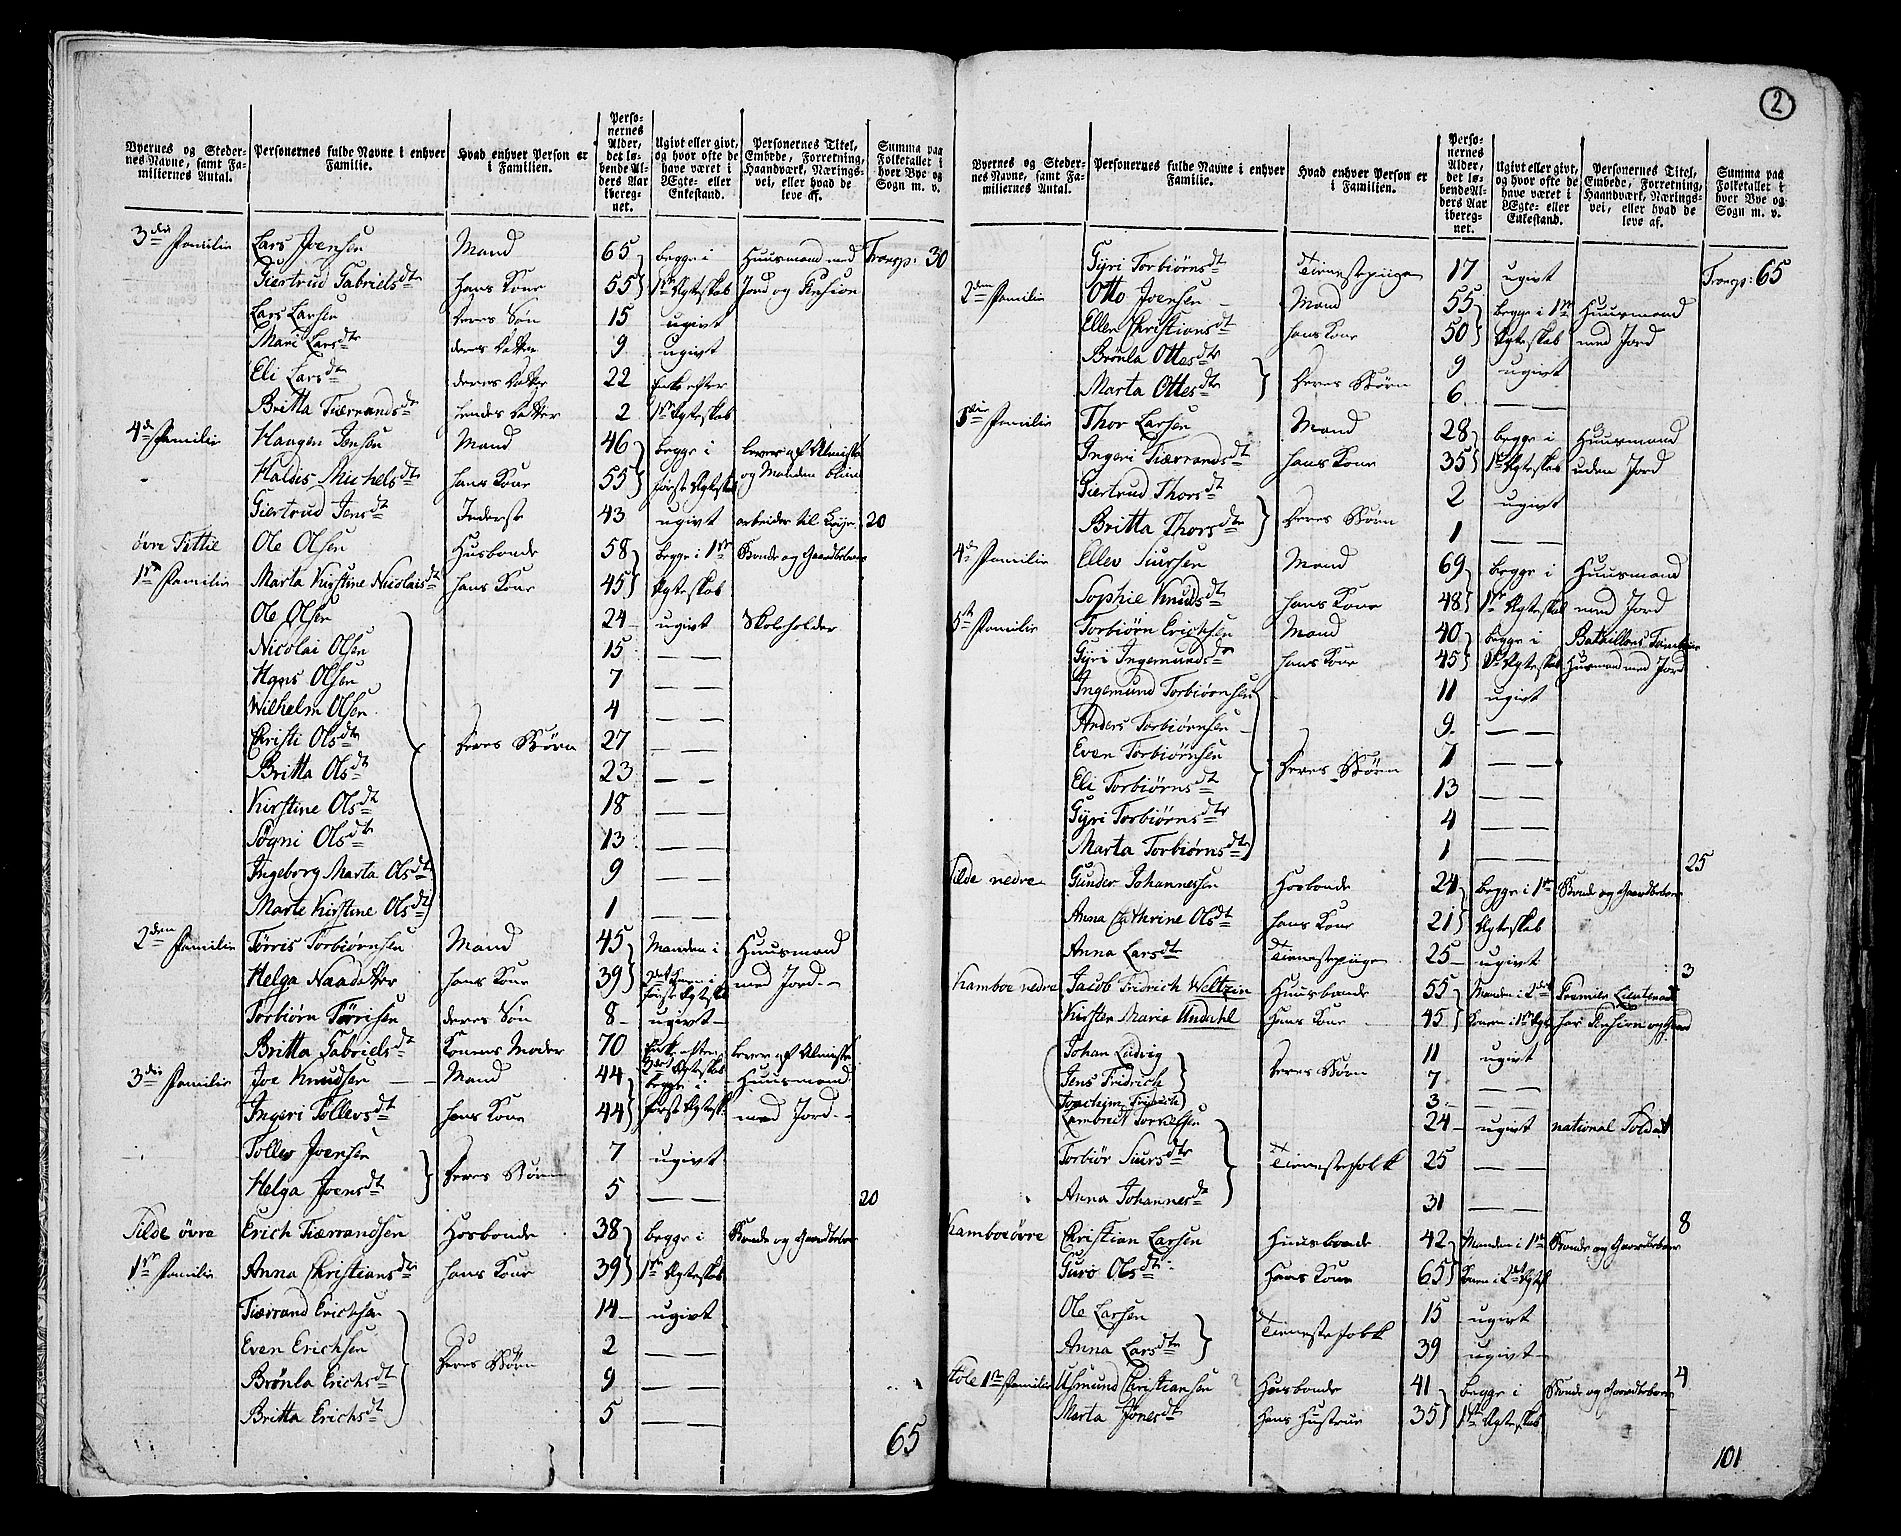 2
Byernes og Stedernes Navne, samt Familiernes Antal. | Personernes fulde Navne i enhver Familie. | Hvad enhver Person er i Familien. | Personernes Alder, det løbende Alders Aar iberegnet. | Ugivt eller givt, og hvor ofte de have været i Ægte- eller Enkestand. | Personernes Titel, Embede, Forretning, Haandværk, Næringsvei, eller hvad de leve af. | Summa paa Folketallet i hver Bye og Sogn m. v.
3die Familie | Lars Joensen | Mand | 65 | begge i | Huusmand med | Transp: 30
Giertrud Gabrielsdtr | hans Kone | 55 | 1ste Egteskab | Jord og Pension
Lars Larsen | deres Søn | 15 | ugivt
Mari Larsdtr | deres Datter | 9 | ugivt
Eli Larsdtr | deres Datter | 22 | Enke efter
Britta Tiærrandsdtr | hendes Datter | 2 | 1ste Egteskab
4de Familie | Haagen Jensen | Mand | 46 | begge i | lever af Almisse
Haldis Michelsdtr | hans Kone | 55 | første Egteskab | og Manden blind
Giertrud Jensdtr | Inderste | 43 | ugivt | arbeider til Leye | 20
øvre Tettie | Ole Olsen | Husbonde | 58 | begge i 1ste | Bonde og Gaardbeboer
1ste Familie | Marta Kirstine Nicolaisdtr | hans Kone | 45 | Egteskab
Ole Olsen | 24 | ugivt | Skoleholder
Nicolai Olsen | 15 | — —
Hans Olsen | 7 | — —
Wilhelm Olsen | 4 | — —
Christi Olsdtr | Deres Børn | 27 | — —
Britta Olsdtr | 23 | — —
Kirstine Olsdtr | 18 | — —
Søgni Olsdtr | 13 | — —
Ingeborg Marta Olsdtr | 9 | — —
Marte Kirstine Olsdtr | 1 | — —
2den Familie | Tørris Torbiørnsen | Mand | 45 | Manden i | Huusmand
Helga Naadatter | hans Kone | 39 | 2det Konen i første Egteskab | med Jord
Torbiørn Tørrisen | deres Søn | 8 | ugivt
Britta Gabrielsdtr | Konens Moder | 70 | Enke efter Egteskab | lever af Almisse
3die Familie | Joe Knudsen | Mand | 44 | begge i | Huusmand
Ingeri Tollevsdtr | hans Kone | 44 | første Egtesk. | med Jord
Tollev Joensen | Deres Børn | 7 | ugivt
Helga Joensdtr | 5 | — — | 20
Tilde øvre | Erich Tiærrandsen | Hosbonde | 38 | begge i | Bonde og Gaardbeboer
1ste Familie | Anna Christiansdtr | hans Kone | 39 | 1ste Egteskab
Tiærrand Erichsen | 14 | ugivt
Even Erichsen | Deres Børn | 2 | — —
Brønla Erichsdtr | 9 | — —
Britta Erichsdtr | 5 | — —
65
Byernes og Stedernes Navne, samt Familiernes Antal. | Personernes fulde Navne i enhver Familie. | Hvad enhver Person er i Familien. | Personernes Alder, det løbende Alders Aar iberegnet. | Ugivt eller givt, og hvor ofte de have været i Ægte- eller Enkestand. | Personernes Titel, Embede, Forretning, Haandværk, Næringsvei, eller hvad de leve af. | Summa paa Folketallet i hver Bye og Sogn m. v.
Gyri Torbiørnsdt | Tienestepige | 17 | ugivt | Transp: 65
2den Familie | Otto Joensen | Mand | 55 | begge i 1ste | Huusmand
Ellen Christiansdt | hans Kone | 50 | Egteskab | med Jord
Brønla Ottesdtr | Deres Børn | 9 | ugivt
Marta Ottesdtr | 6 | — —
3die Familie | Thor Larsen | Mand | 28 | begge i | Huusmand
Ingeri Tiærrandsdt | hans Kone | 35 | 1ste Egteskab | uden Jord
Giertrud Thorsdt | Deres Børn | 2 | ugivt
Britta Thorsdtr | 1 | — —
4de Familie | Ellev Siursen | Mand | 69 | begge i | Huusmand
Sophie Knudsdt | hans Kone | 48 | 1ste Egteskab | med Jord
5te Familie | Torbiørn Erichsen | Mand | 40 | begge i | Bataillons Tambour
Gyri Ingemundsdtr | hans Kone | 45 | 1ste Egteskab | Husmand med Jord
Ingemund Torbiørnsen | 11 | ugivt
Anders Torbiørnsen | 9 | — —
Even Torbiørnsen | Deres Børn | 7 | — —
Eli Torbiørnsdt | 13 | — —
Gyri Torbiørnsdtr | 4 | — —
Marta Torbiørnsdtr | 1 | — — | 25
Tilde nedre | Gunder Johannessen | Hosbonde | 24 | begge i 1ste | Bonde og Gaardbeboer
Anna Cathrine Olsdt | hans Kone | 21 | Egteskab
Anna Larsdtr | Tienestepige | 25 | ugivt | 3
Kamboe nedre | Jacob Fridrich Weltzin | Huusbonde | 55 | Manden i 2det | Premier Lieutenant
Kirsten Marie Undahl | Hans Kone | 45 | Konen i 1ste Egtes. | har Pension og Gaard
Johan Ludvig | Deres Børn | 11 | ugivt
Jens Fridrich | 7 | — —
Joachim Fridrich | 3 | — —
Lambrect Torkelsen | 24 | ugivt | national Soldat
Torbiør Siursdtr | Tienestefolk | 25 | — —
Anna Johannesdtr | 31 | — — | 8
Kamboe øvre | Christian Larsen | Huusbonde | 42 | Manden i 1ste | Bonde og Gaardbeboer
Guro Olsdtr | Hans Kone | 65 | Konen i 2det Egtesk.
Ole Larsen | Tienestefolk | 15 | ugivt
Anna Larsdtr | 39 | ugivt | 4
Hole 1ste Familie | Asmund Christiansen | Husbonde | 41 | begge i | Bonde og Gaardbeboer
Marta Jonesdtr | Hans Hustrue | 35 | 1ste Egteskab
101